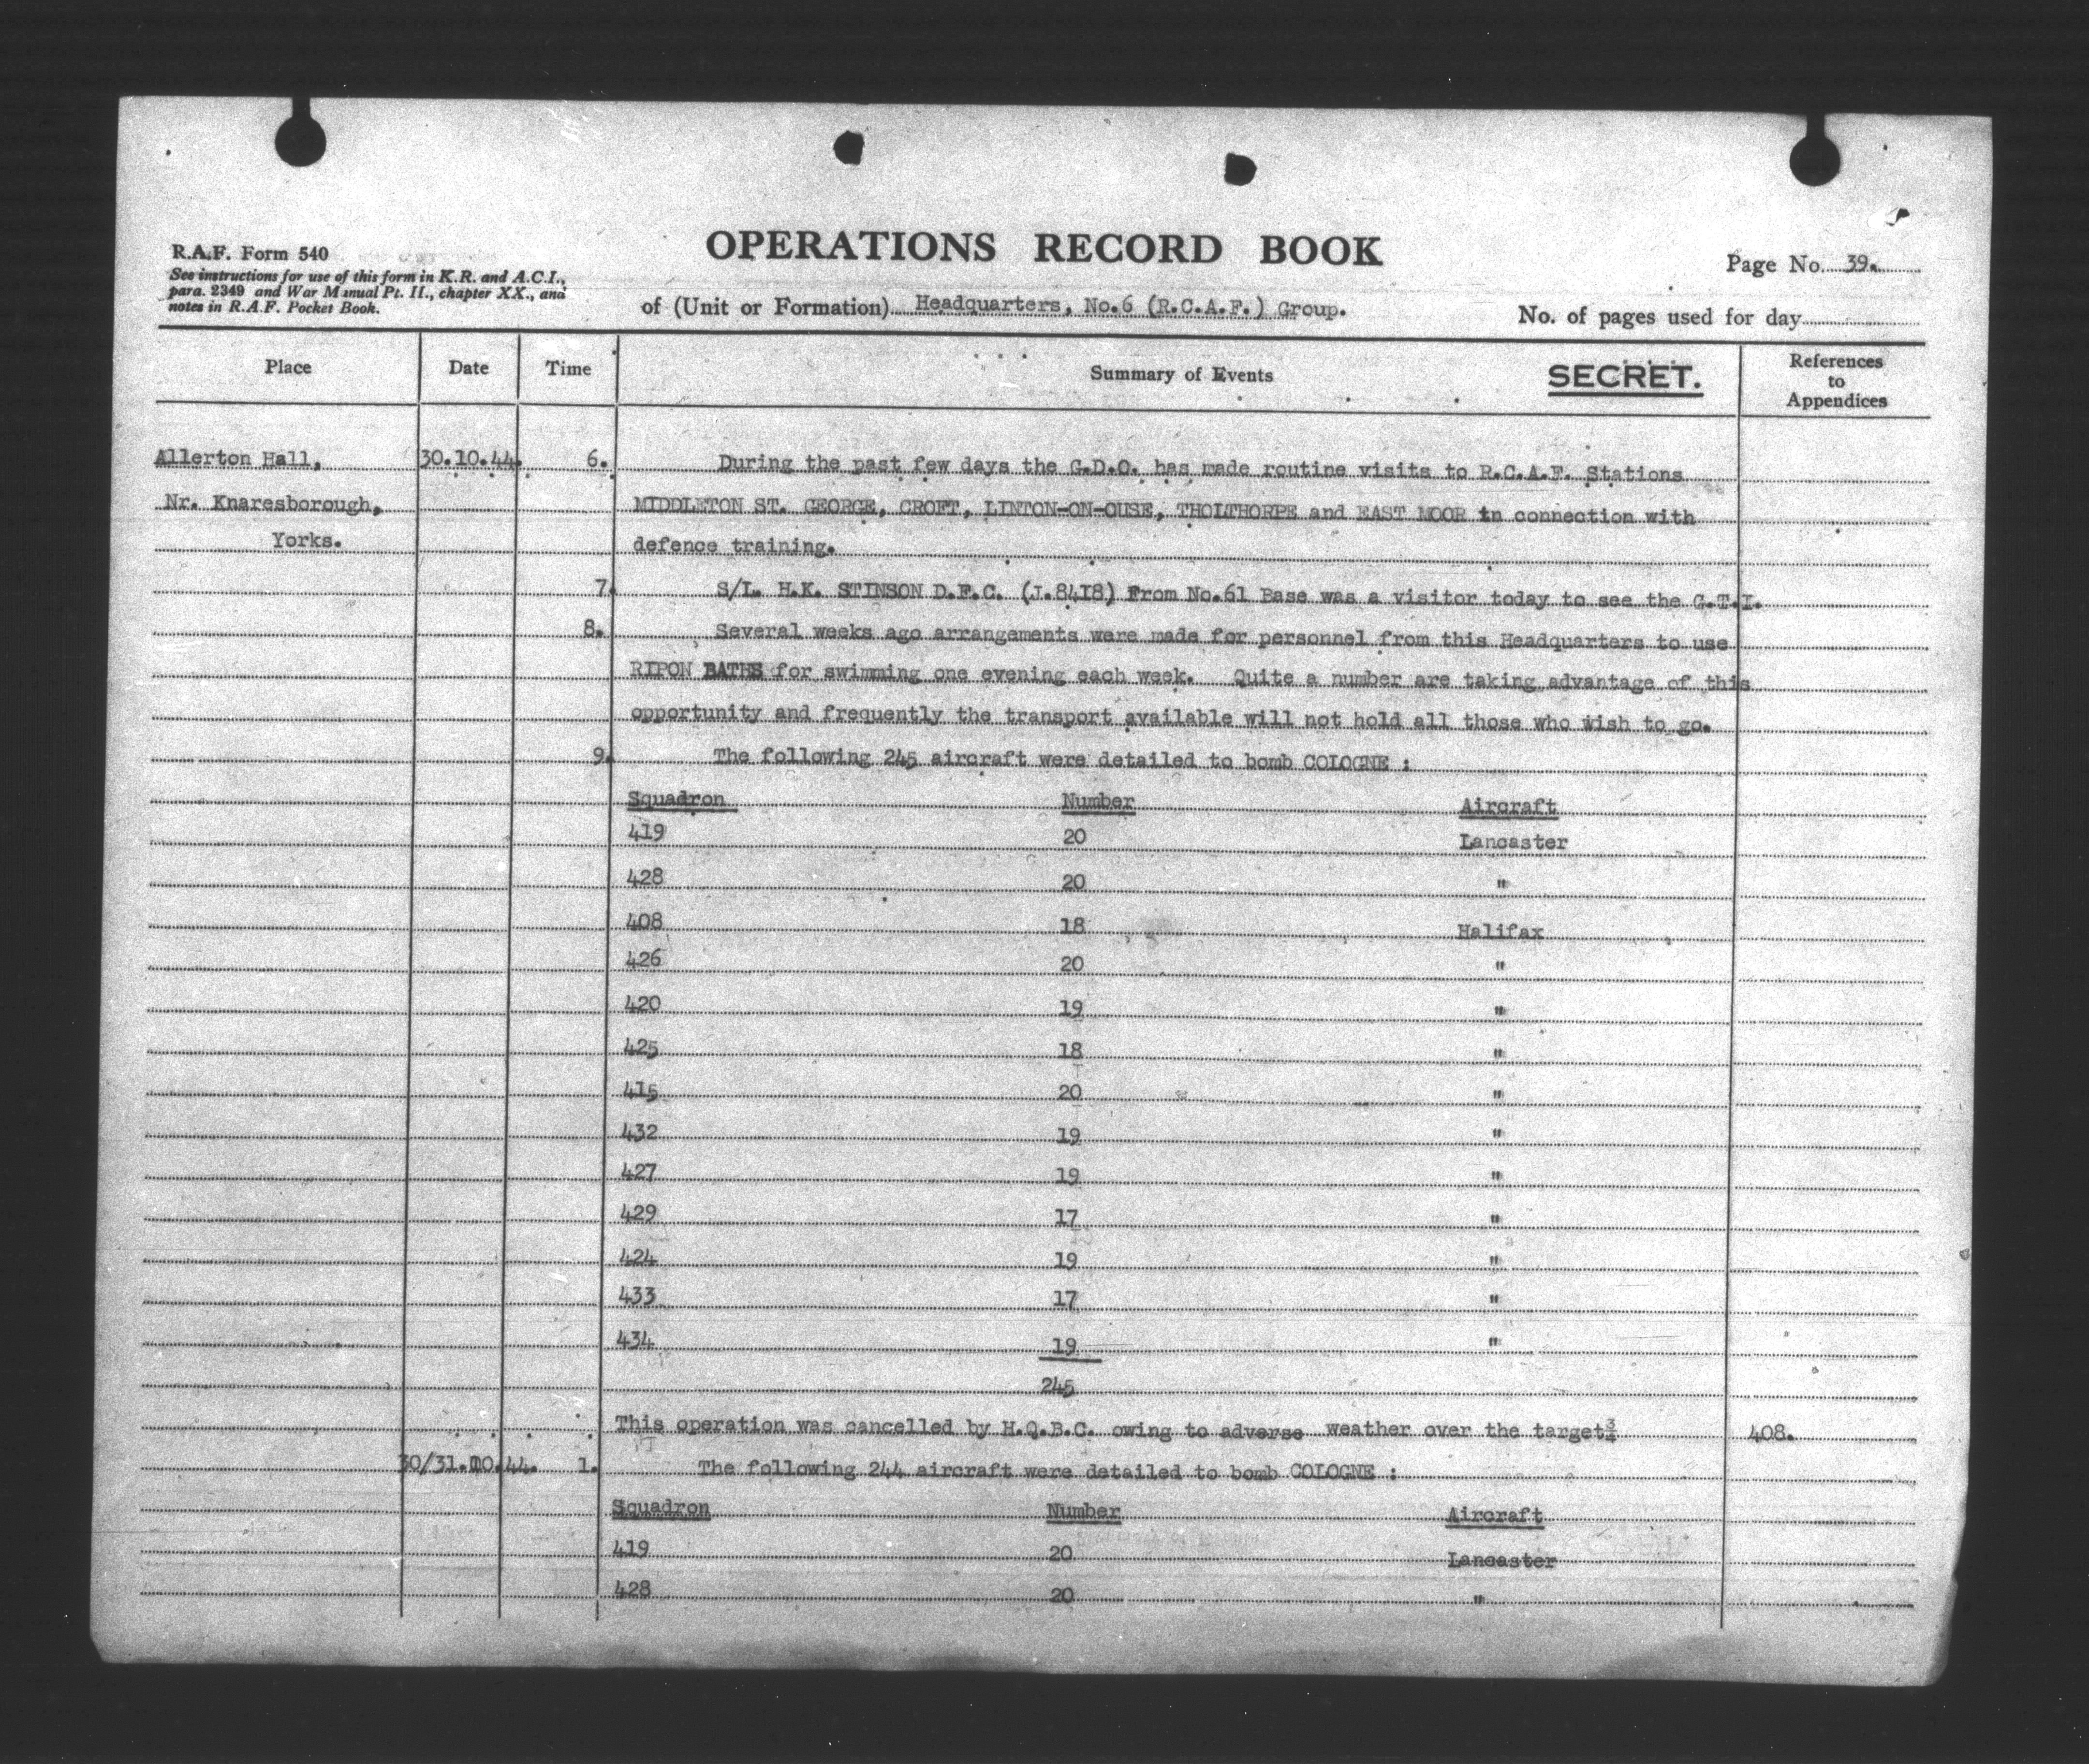 R.A.F. Form 540
See instructions for use of this form in K.R. and A.C.I.,
para. 2349 and War Manual Pt. II., chapter XX., and
notes in R.A.F. Pocket Book.
OPERATIONS RECORD BOOK
of (Unit or Formation) Headquarters, No.6 (R.C.A.F.) Group.
Page No. 39.
No. of pages used for day
Place Date Time Summary of Events SECRET. References
to
Appendices
Allerton Hall, 30.10.44. 6. During the past few days the G.D.O. has made routine visits to R.C.A.F. Stations
Nr. Knaresborough, MIDDLETON ST. GEORGE, CROFT, LINTON-ON-OUSE, THOLTHORPE and EAST MOOR in connection with
Yorks. defence training.
7. S/L. H.K. STINSON D.F.C. (J.8418) From No.61 Base was a visitor today to see the G.T.I.
8. Several weeks ago arrangements were made for personnel from this Headquarters to use
RIPON BATHS for swimming one evening each week. Quite a number are taking advantage of this
opportunity and frequently the transport available will not hold all those who wish to go.
9. The following 245 aircraft were detailed to bomb COLOGNE :
Squadron Number Aircraft
419 20 Lancaster
428 20 "
408 18 Halifax
426 20 "
420 19 "
425 18 "
415 20 "
432 19 "
427 19 "
429 17 "
424 19 "
433 17 "
434 19 "
245
This operation was cancelled by H.Q.B.C. owing to adverse weather over the target¾ 408.
30/31.10.44. 1. The following 244 aircraft were detailed to bomb COLOGNE :
Squadron Number Aircraft
419 20 Lancaster
428 20 "